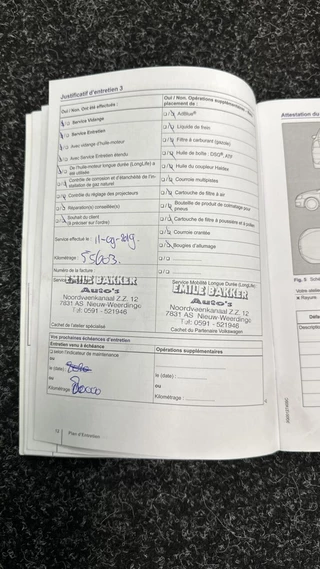 Justificatif d'entretien 3
Oui / Non. Ont été effectués :
Service Vidange
Service Entretien
Avec vidange d'huile-moteur
Avec Service Entretien étendu
De l'huile-moteur longue durée (LongLife) a été utilisée
Contrôle de corrosion et d'étanchéité de l'installation de gaz naturel
Contrôle du réglage des projecteurs
Réparation(s) conseillée(s)
Souhait du client
(à préciser sur l'ordre)
Service effectué le : 11-09-2019.
Kilométrage : 55603.
Numéro de la facture :
Service
EMILE BAKKER
Auto's
Noordveenkanaal Z.Z. 12
7831 AS Nieuw-Weerdinge
Tel: 0591 - 521946
Cachet de l'atelier spécialisé
Oui / Non. Opérations supplémentaires,
placement de :
AdBlue®
Liquide de frein
Filtre à carburant (gazole)
Huile de boîte : DSG®, ATF
Huile du coupleur Haldex
Courroie multipistes
Cartouche de filtre à air
Bouteille de produit de colmatage pour pneus
Cartouche de filtre à poussière et à pollen
Courroie crantée
Bougies d'allumage
Service Mobilité Longue Durée (LongLife)
EMILE BAKKER
Auto's
Noordveenkanaal Z.Z. 12
7831 AS Nieuw-Weerdinge
Tel: 0591 - 521946
Cachet du Partenaire Volkswagen
Vos prochaines échéances d'entretien
Entretien venu à échéance
selon l'indicateur de maintenance
ou
le (date) :
ou
Kilométrage :
Opérations supplémentaires
le (date) :
ou
Kilométrage :
Plan d'Entretien
Attestation du
Fig. 5
Votre atelier
Rayure
Description